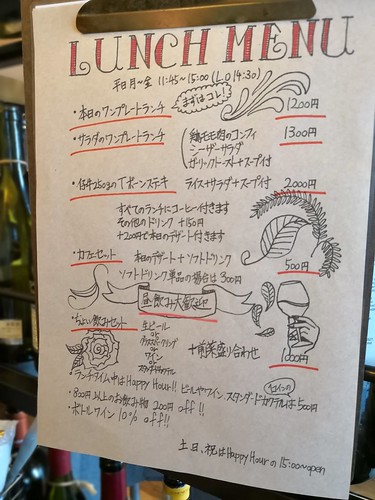 LUNCH MENU
平日 月～金 11:45～15:00 (L.O 14:30)
まずはコレ!
・本日のワンプレートランチ 1200円
・サラダのワンプレートランチ 鶏モモ肉のコンフィ 1300円
シーザーサラダ
ガーリックトースト+スープ付
・仔牛250gのTボーンステーキ ライス+サラダ+スープ付 2000円
すべてのランチにコーヒー付きます
その他のドリンク +150円
+200円で本日のデザート付きます
・カフェセット 本日のデザート+ソフトドリンク 500円
ソフトドリンク単品の場合は300円
昼飲み大歓迎!!
・ちょい飲みセット
生ビール
or
グラススパークリング
or
ワイン
or
スタンダードカクテル
+前菜盛り合わせ 1000円
・ランチタイム中はHappy Hour!! ビールやワイン、スタンダードカクテルは500円
・800円以上のお飲み物 200円 off!!
・ボトルワイン 10% off!!
土、日、祝はHappy Hourの15:00～open